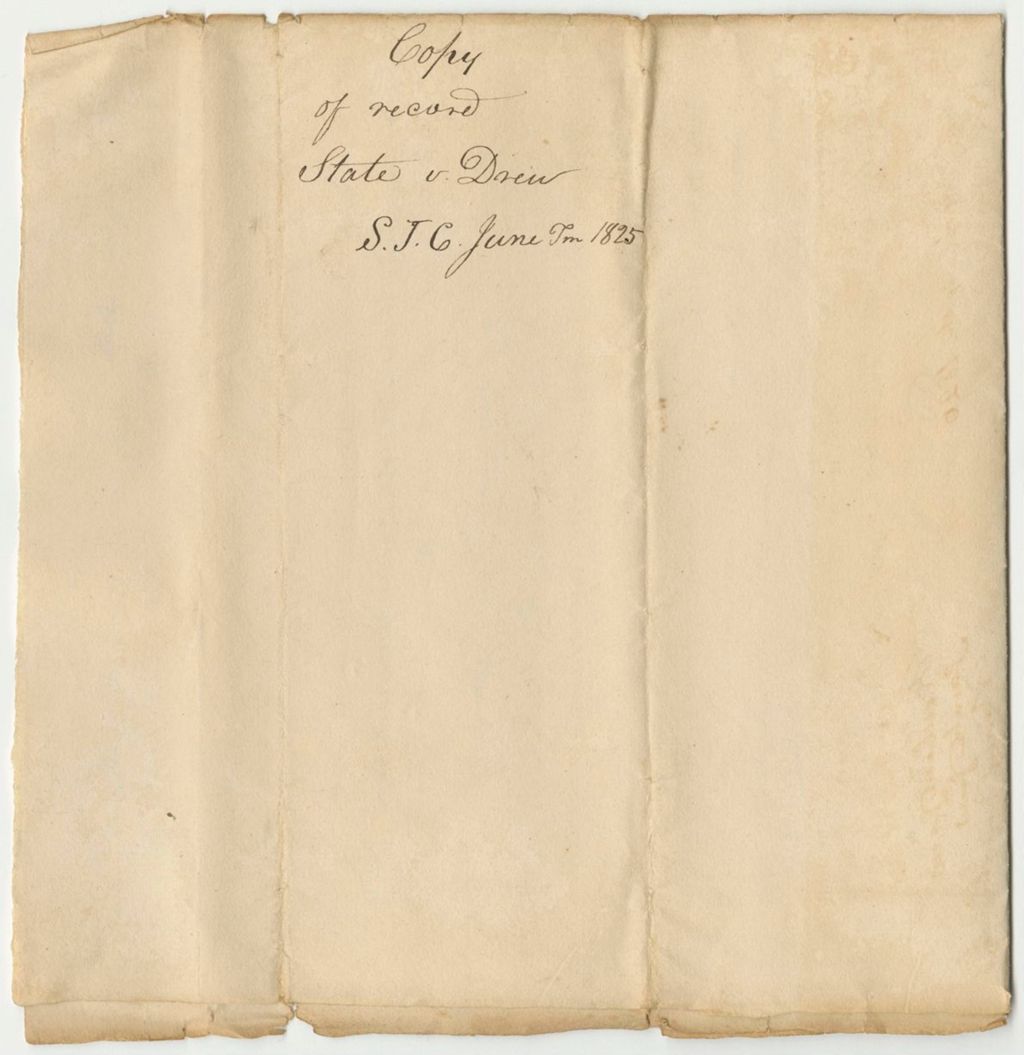 Copy
of record
State v. Drew
S. J. C. June Tm 1825